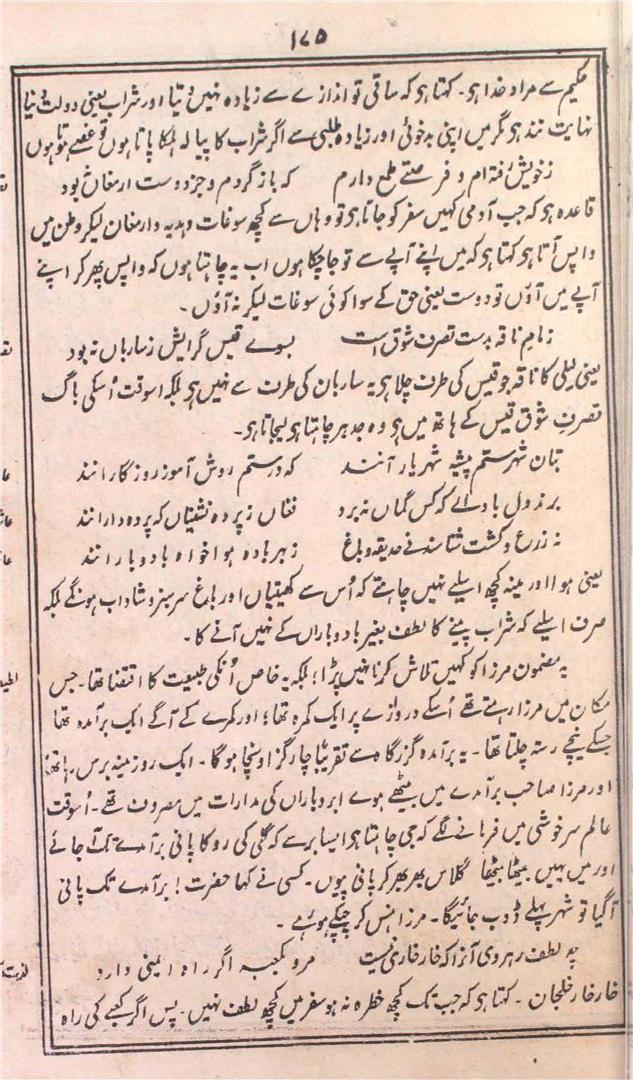 ۱۷۵
حکیم سے مراد خدا ہو۔ کہتا ہو کہ ساقی تو اندازے سے زیادہ نہیں دیتا اور شراب یعنی دولت دنیا
نہایت تند ہو مگر میں اپنی بدخوئی اور زیادہ طلبی سے اگر شراب کا پیالہ ہلکا پاتا ہوں تو غصے ہوتا ہوں
ز خویش رفته ام و فرصتے طمع دارم که باز گردم و جز دوست ارمغان نبود
قاعدہ ہو کہ جب آدمی کہیں سفر کو جاتا ہو تو وہاں سے کچھ سوغات و ہدیہ و ارمغان لیکر وطن میں
واپس آتا ہو کہتا ہو کہ میں اپنے آپے سے تو جا چکا ہوں اب یہ چاہتا ہوں کہ واپس پھر کر اپنے
آپے میں آؤں تو دوست یعنی حق کے سوا کوئی سوغات لیکر نہ آؤں۔
زمام ناقہ بدست تصرف شوق است بسوے قیس گرایش ز ساربان نہ بود
یعنی لیلی کا ناقہ جو قیس کی طرف چلا ہو یہ ساربان کی طرف سے نہیں ہو بلکہ اسوقت اُسکی باگ
تصرفِ شوق قیس کے ہاتھ میں ہو وہ جدہر چاہتا ہو لیجاتا ہو۔
بتان شہر ستم پیشہ شہریار آنند که در ستم روش آموز روزگار انند
برند دل باداے که کس گماں نہ برد فغاں ز پردہ نشیناں که پردہ دار انند
نہ زرع و کشت شناسند نے حدیقہ و باغ ز بہر بادہ ہوا خواہ باد و بارانند
یعنی ہوا اور مینہ کچھ اسلیے نہیں چاہتے کہ اُس سے کھیتیاں اور باغ سرسبز و شاداب ہونگے بلکہ
صرف اسلیے کہ شراب پینے کا لطف بغیر باد و باراں کے نہیں آنے کا۔
یہ مضمون مرزا کو کہیں تلاش کرنا نہیں پڑا؛ بلکہ یہ خاص اُنکی طبیعت کا اقتضا تھا۔ جس
مکان میں مرزا رہتے تھے اُسکے دروازے پر ایک کمرہ تھا؛ اور کمرے کے آگے ایک برآمدہ تھا
جسکے نیچے رستہ چلتا تھا۔ یہ برآمدہ گزرگاہ سے تقریباً چار گز اونچا ہوگا۔ ایک روز مینہ برس رہا تھا
اور مرزا صاحب برآمدے میں بیٹھے ہوے ابر و باراں کی مدارات میں مصروف تھے۔ اُسوقت
عالم سرخوشی میں فرمانے لگے کہ جی چاہتا ہو ایسا برسے کہ گلی کی رو کا پانی برآمدے تک آ جائے
اور میں یہیں بیٹھا بیٹھا گلاس بھر بھر کر پانی پیوں۔ کسی نے کہا حضرت! برآمدے تک پانی
آگیا تو شہر پہلے ڈوب جائیگا۔ مرزا ہنس کر چپکے ہو رہے۔
چہ لطف رہروی آنرا کہ خار خاری نیست مرو بکعبہ اگر راہ ایمنی دارد
خار خار خلجان۔ کہتا ہو کہ جب تک کچھ خطرہ نہ ہو سفر میں کچھ لطف نہیں۔ پس اگر کعبے کی راہ